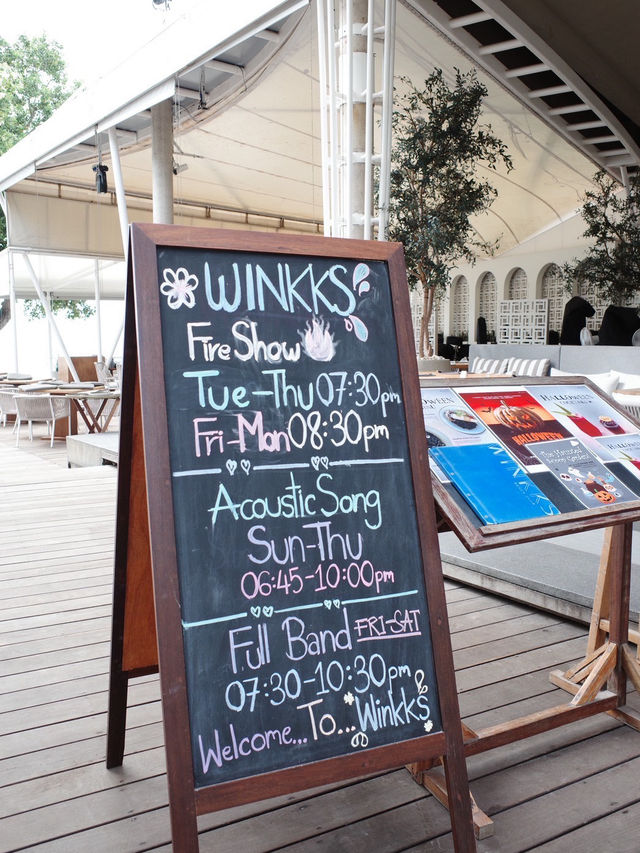 WINKKS
Fire Show
Tue-Thu 07:30pm
Fri-Mon 08:30pm
Acoustic Song
Sun-Thu
06:45-10:00pm
Full Band FRI-SAT
07:30-10:30pm
Welcome...To...Winkks
HALLOWEEN